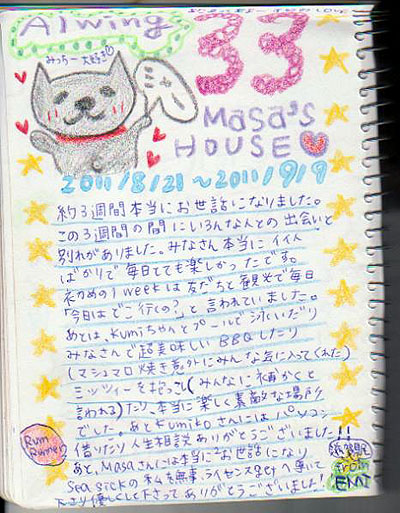 Aiwing
みっちー大好き♡
33
Masa's
HOUSE
2011/8/21～2011/9/9
約3週間本当にお世話になりました。
この3週間の間にいろんな人との出会いと
別れがありました。みなさん本当にイイ人
ばかりで毎日とても楽しかったです。
初めの1weekは友だちと観光で毎日
「今日はどこ行くの?」と言われていました。
あとは、Kumiちゃんとプールで泳いだり
みなさんで超美味しいBBQしたり
(マシュマロ焼き意外にみんな気に入ってくれた)
ミッツィーを抱っこし(みんなに捕かくと
言われる)たり、本当に楽しく素敵な場所
でした。あとKumikoさんにはパソコン
借りたり人生相談ありがとうございました!!
あと、Masaさんには本当にお世話になり
Sea sickの私を無事、ライセンスまで導いて
下さり優しくして下さってありがとうございました!
Rum
Rumen
from
EMI